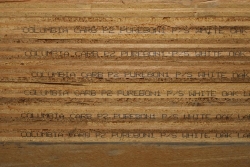 COLUMBIA CARB P2 PUREBOND P/S WHITE OAK
COLUMBIA CARB P2 PUREBOND P/S WHITE
COLUMBIA CARB P2 PUREBOND P/S WHITE
COLUMBIA CARB P2 PUREBOND P/S WHITE OAK
COLUMBIA CARB P2 PUREBOND P/S WHITE OAK
COLUMBIA CARB P2 PUREBOND P/S WHITE OAK